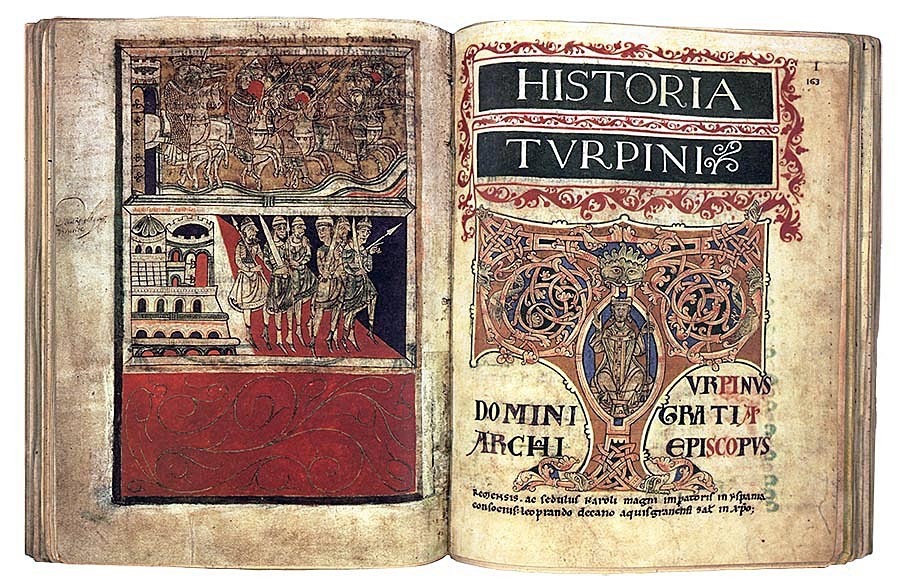 I
163
HISTORIA
TVRPINI
TVRPINVS
DOMINI GRATIA
ARCHI EPISCOPVS
REMENSIS. ac sedulus Karoli magni imꝑatoris in yspania
consocius. leoprando decano aquisgranensi sal̄ in xp̄o;